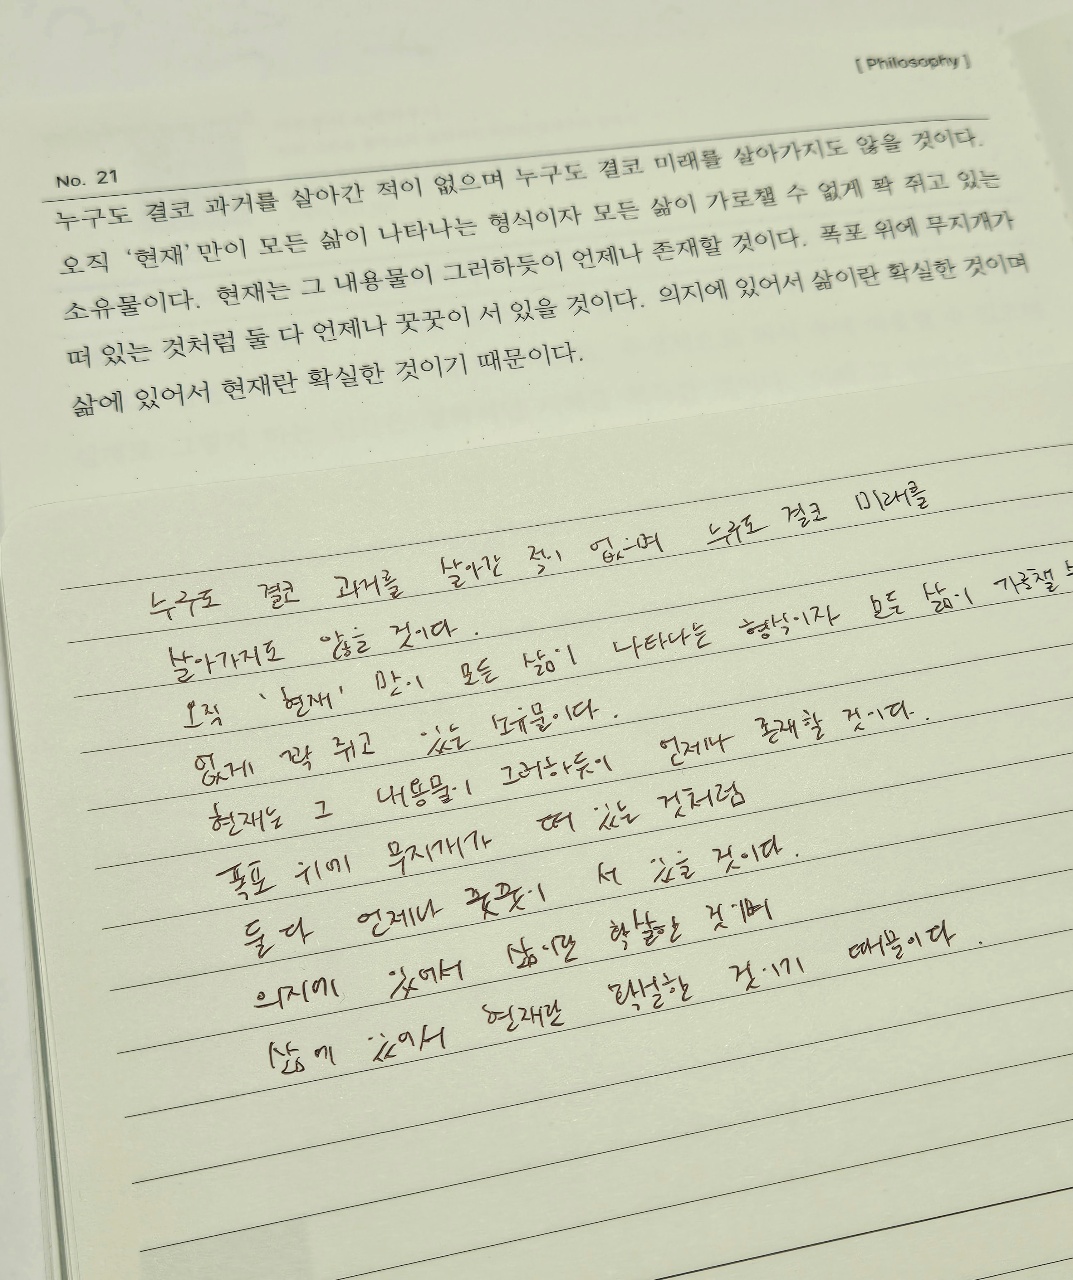 [ Philosophy ]
No. 21
누구도 결코 과거를 살아간 적이 없으며 누구도 결코 미래를 살아가지도 않을 것이다.
오직 ‘현재’만이 모든 삶이 나타나는 형식이자 모든 삶이 가로챌 수 없게 꽉 쥐고 있는
소유물이다. 현재는 그 내용물이 그러하듯이 언제나 존재할 것이다. 폭포 위에 무지개가
떠 있는 것처럼 둘 다 언제나 꿋꿋이 서 있을 것이다. 의지에 있어서 삶이란 확실한 것이며
삶에 있어서 현재란 확실한 것이기 때문이다.
누구도 결코 과거를 살아간 적이 없으며 누구도 결코 미래를
살아가지도 않을 것이다.
오직 ‘현재’ 만이 모든 삶이 나타나는 형식이자 모든 삶이 가로챌
없게 꽉 쥐고 있는 소유물이다.
현재는 그 내용물이 그러하듯이 언제나 존재할 것이다.
폭포 위에 무지개가 떠 있는 것처럼
둘 다 언제나 꿋꿋이 서 있을 것이다.
의지에 있어서 삶이란 확실한 것이며
삶에 있어서 현재란 확실한 것이기 때문이다.